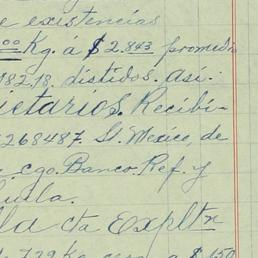 e existencias
00 Kg. á $2.843 promedio
182.18, distidos. así:
ietarios. Recibi-
268487. St. Mexico, de
cgo. Banco. Ref. y
uila.
lla cta Expltn
729 Kg. a $ 150